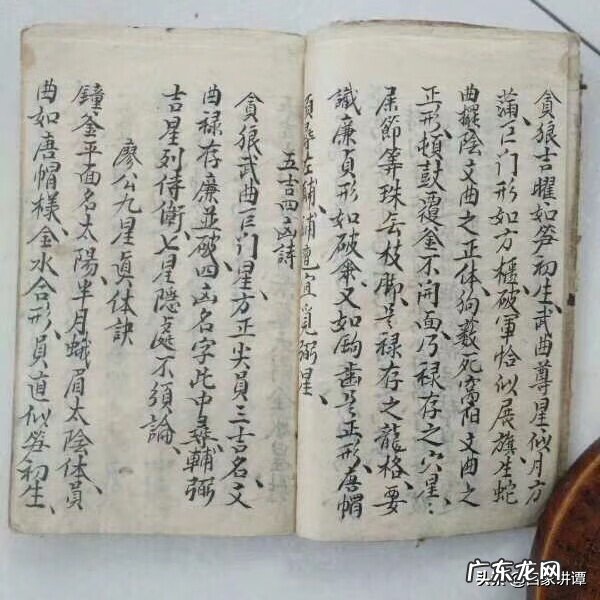 貪狼吉曜如笋初生、武曲尊星似月方
蒲、巨门形如方櫃、破軍恰似展旗、生蛇
曲擺陰文曲之正体、狗薮死鳝陽文曲之
正形、頓鼓覆釜不開面乃禄存之穴星、
屈節筭珠去枝脚是禄存之龍格、要
識廉貞形如破傘又如鋸齒是正形、唐帽
頭尋左輔、輔邊宜覓弼星、
五吉四凶詩
貪狼武曲巨门星方正尖員三吉名、文
曲禄存廉並破四凶名字此中尋、輔弼
吉星列侍衛、七星隱處不須論、
廖公九星真体訣
鐘釜平面名太陽、半月蛾眉太陰体、員
曲如唐帽様、金水合形、員直似笋初生、
广东龙网
头条@百家讲谭